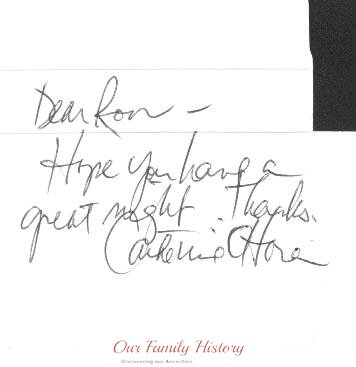 Dear Ron –
Hope you have a
great night. Thanks.
Catherine O'Hara
Our Family History
Discovering our Ancestors